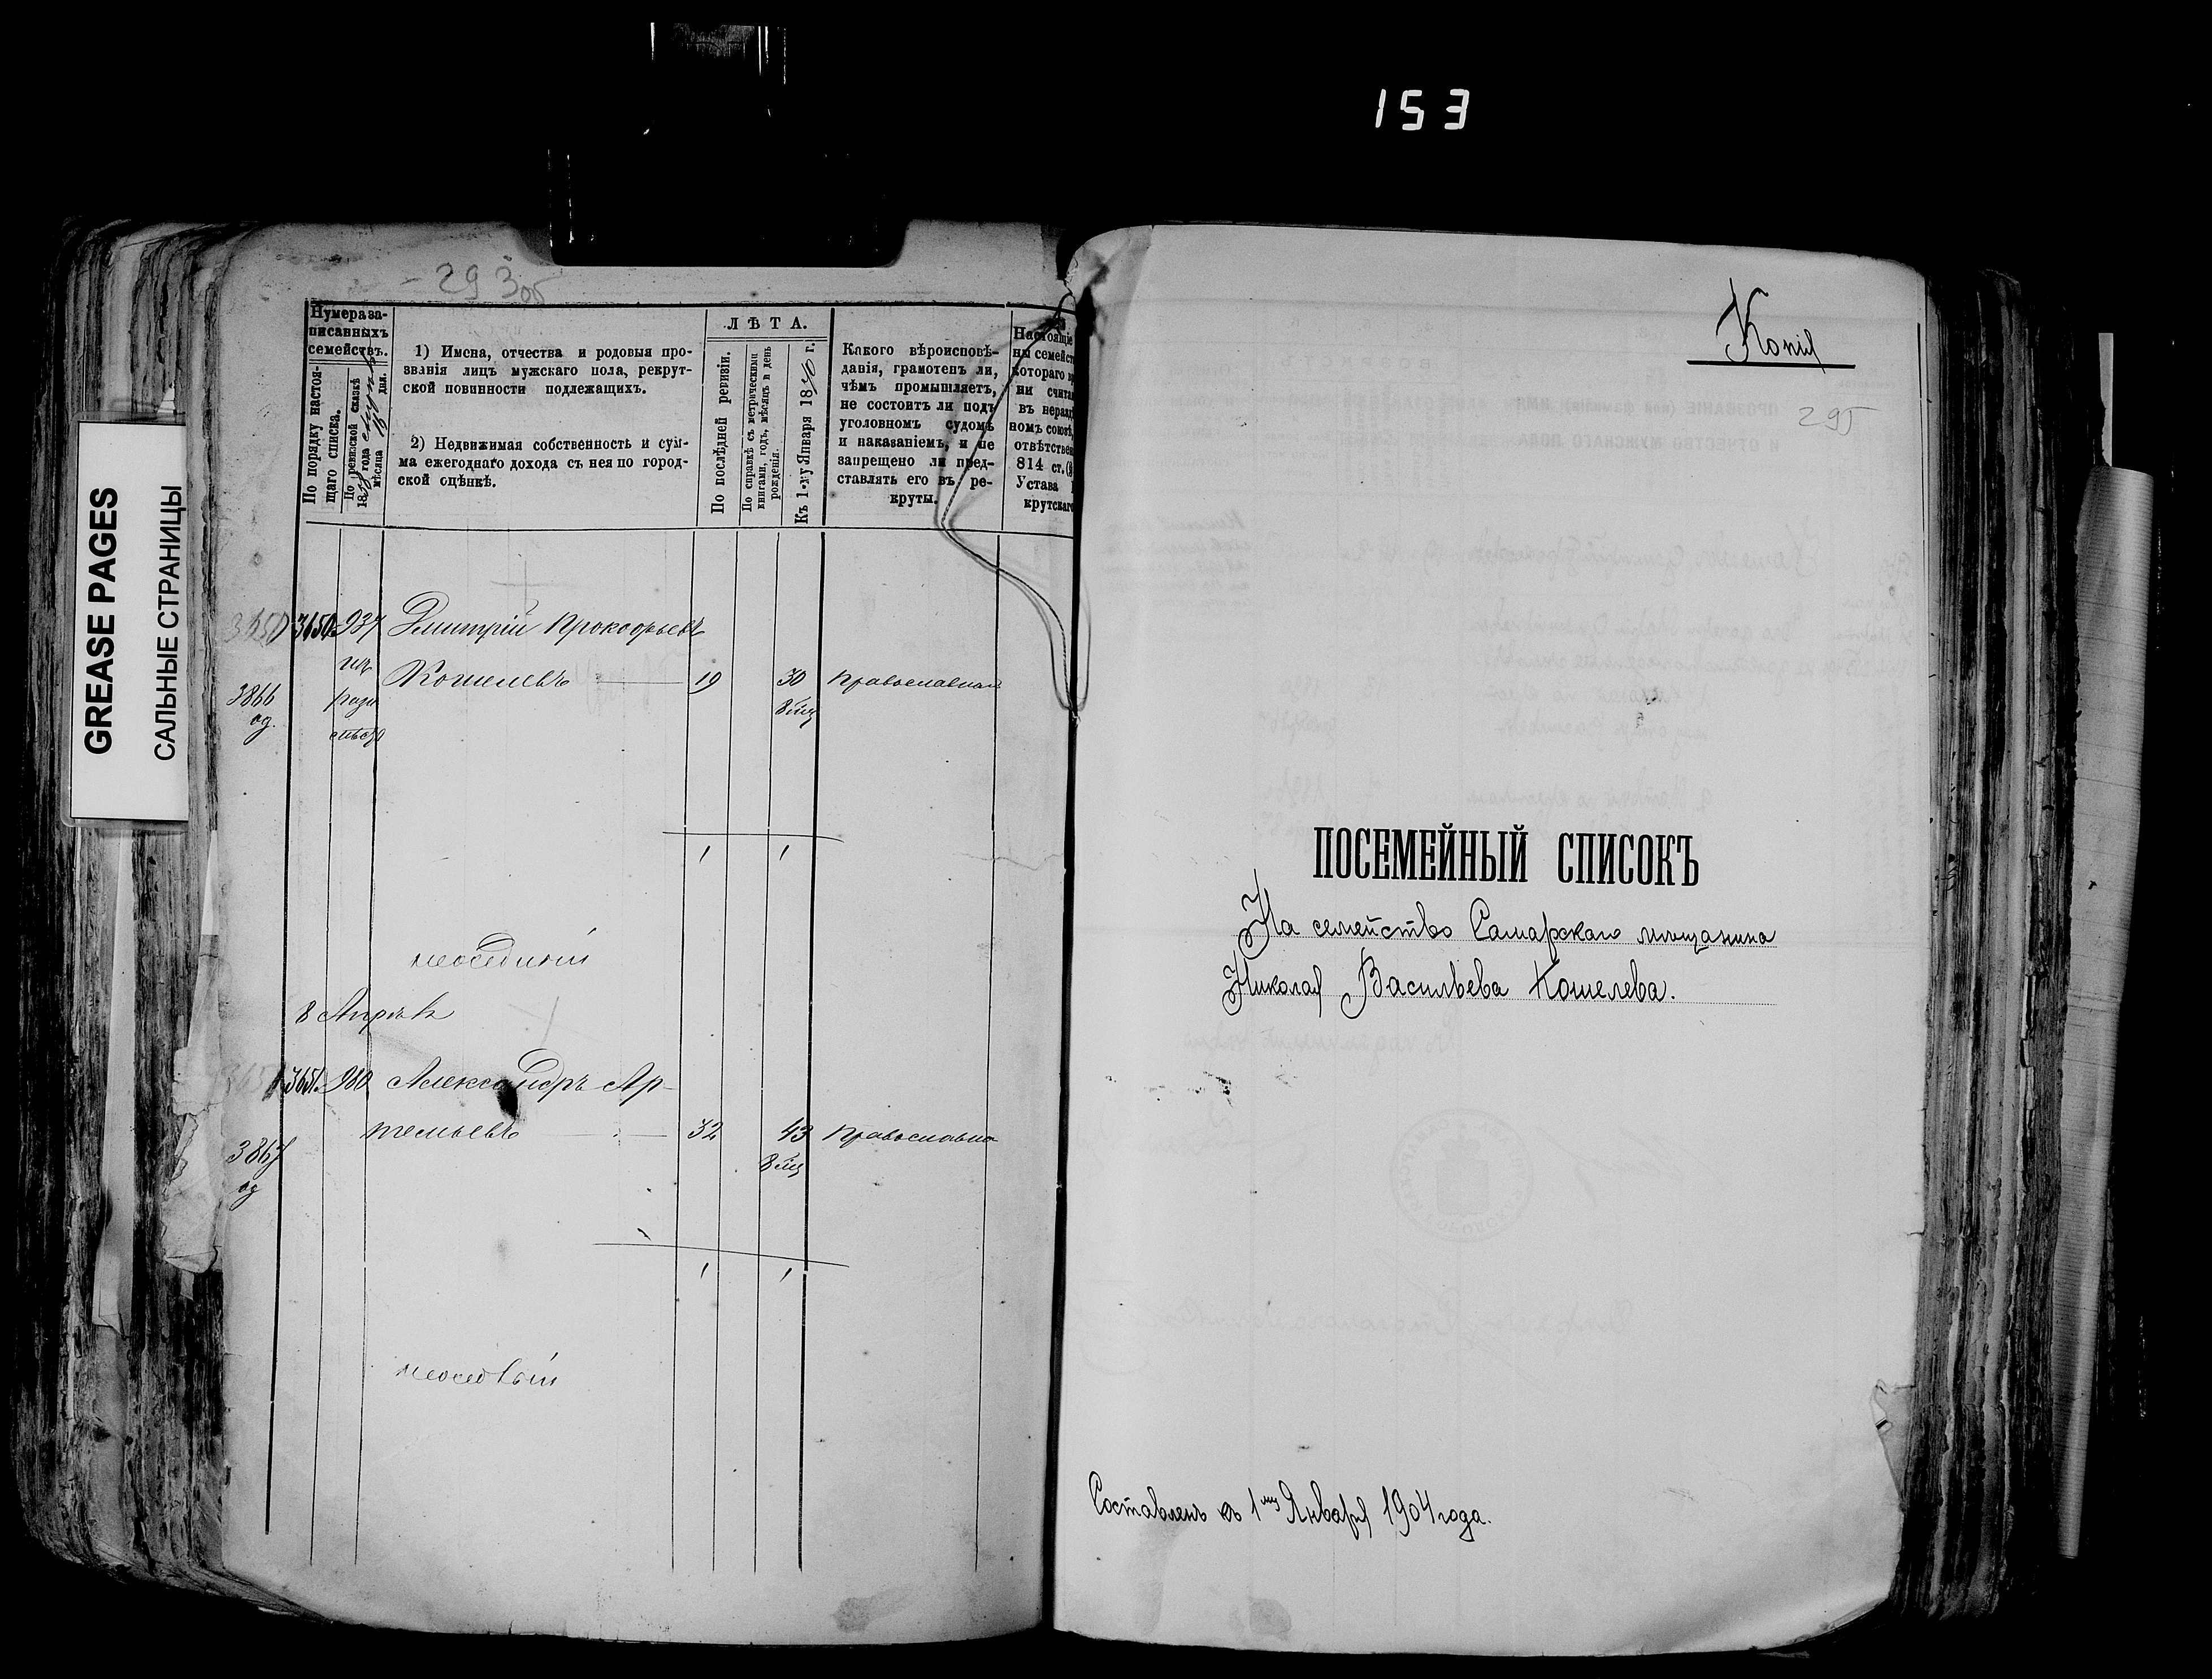 153
GREASE PAGES
САЛЬНЫЕ СТРАНИЦЫ
293об
Нумера за-
писанныхъ
семействъ.
По порядку настоя-
щаго списка.
По ревизской сказкѣ
18 года
мѣсяца дня.
1) Имена, отчества и родовыя про-
званія лицъ мужскаго пола, рекрут-
ской повинности подлежащихъ.
2) Недвижимая собственность и сум-
ма ежегоднаго дохода съ нея по город-
ской оцѣнкѣ.
ЛѢТА.
По послѣдней ревизіи.
По справкѣ съ метрическими
книгами, годъ, мѣсяцъ и день
рожденія.
Къ 1-му Января 1870 г.
Какого вѣроисповѣ-
данія, грамотенъ ли,
чѣмъ промышляетъ,
не состоитъ ли подъ
уголовномъ судомъ
и наказаніемъ, и не
запрещено ли пред-
ставлять его въ ре-
круты.
Настоящіе
ны семейст
котораго
ни счита
въ нераз
номъ союзѣ,
отвѣтствен
814 ст.
Устава
крутскаго
3650 3650 937 Дмитрій Прокофьевъ
изъ Кошелевъ 19 30 Православнаго
3866 разн
од.
1 1
неоседлый
8 Апрѣля
3651 980 Александръ Ар-
темьевъ 32 43 Православна
3867
од
1 1
неоседлый
Копія
295
ПОСЕМЕЙНЫЙ СПИСОКЪ
На семейство Самарскаго мѣщанина
Николая Васильева Кошелева.
Составленъ къ 1му Января 1904 года.